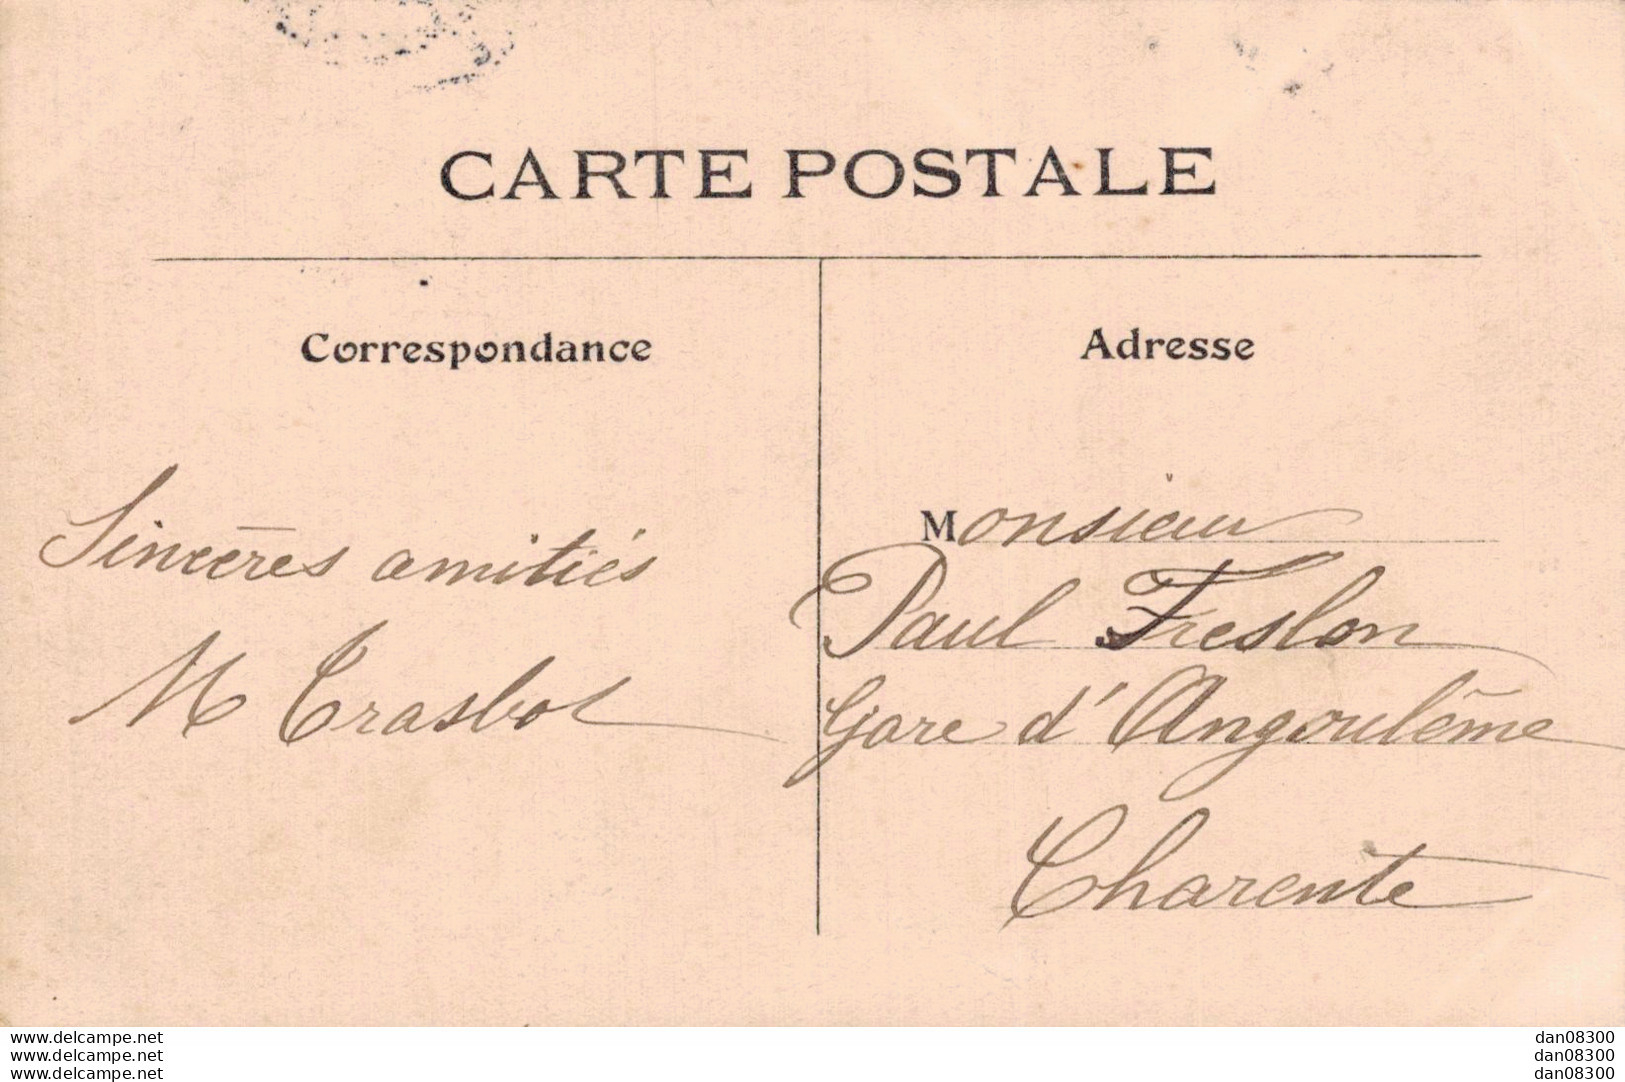 CARTE POSTALE
Correspondance
Sincères amitiés
M Trasbot
Adresse
Monsieur
Paul Freslon
Gare d'Angoulême
Charente
www.delcampe.net
www.delcampe.net
www.delcampe.net
dan08300
dan08300
dan08300